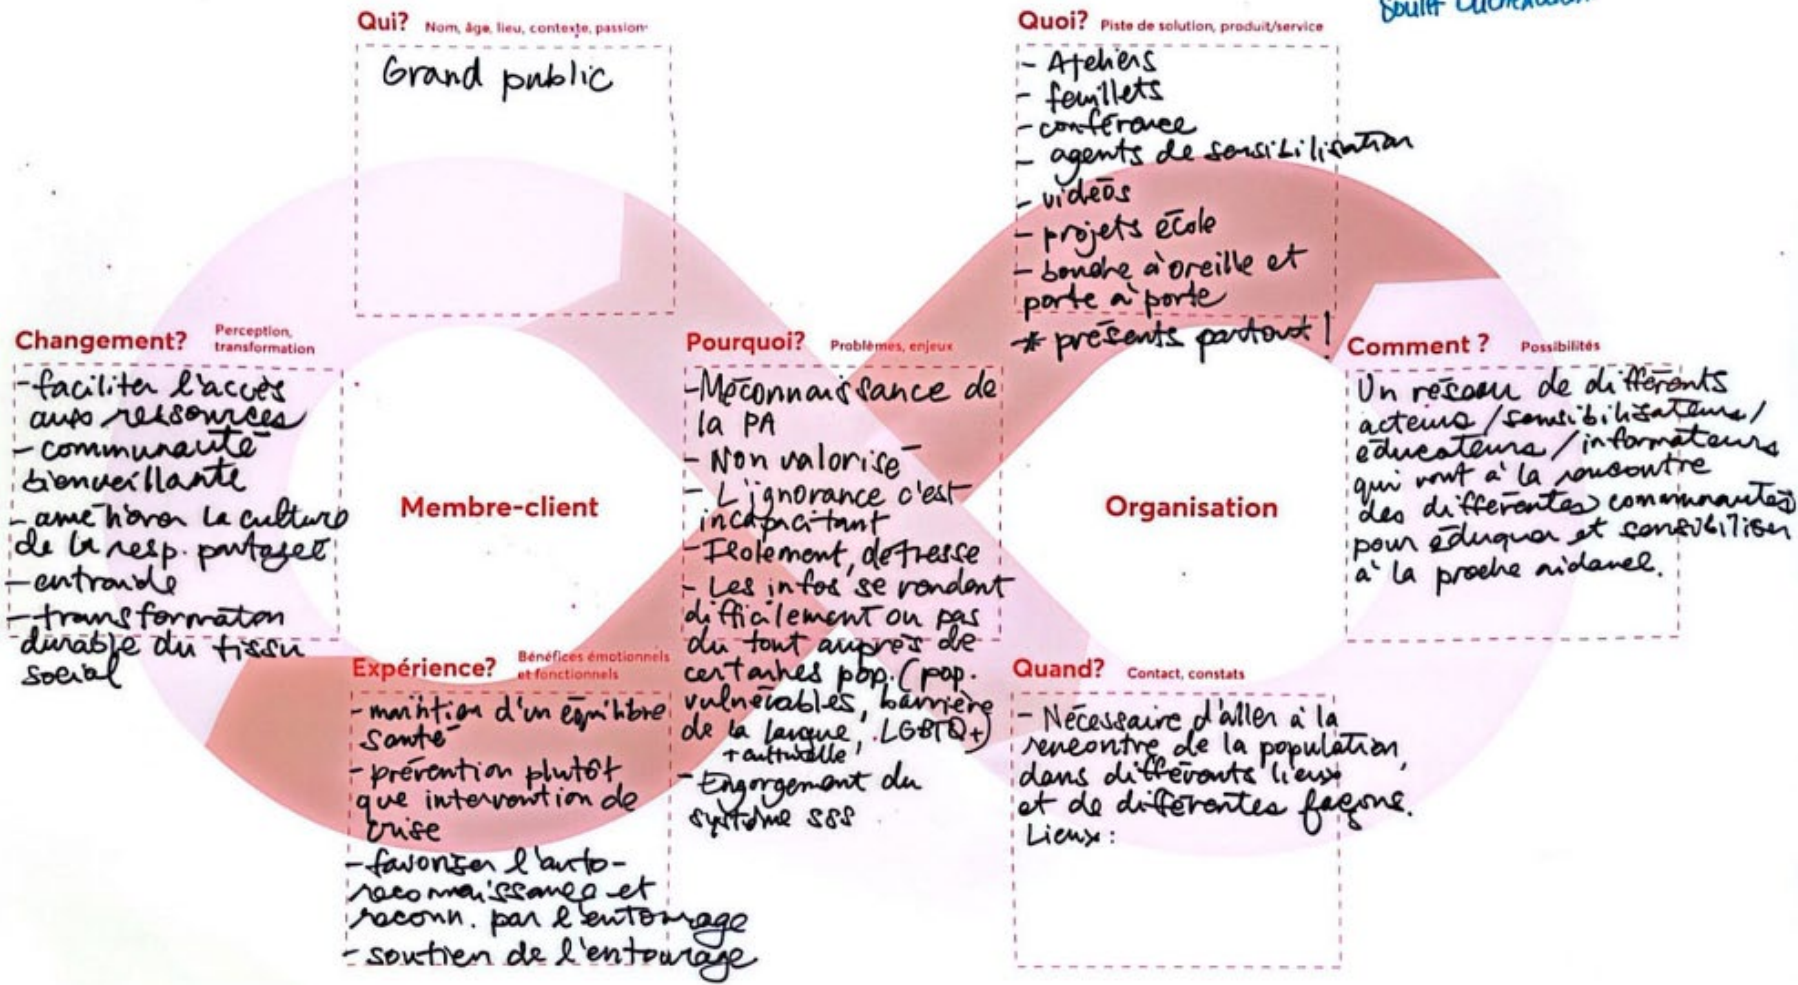 Qui? Nom, âge, lieu, contexte, passion
Grand public
Quoi? Piste de solution, produit/service
- Ateliers
- feuillets
- conférence
- agents de sensibilisation
- vidéos
- projets école
- bouche à oreille et
porte à porte
* présents partout!
Changement? Perception,
transformation
- faciliter l'accès
aux ressources
- communauté
bienveillante
- améliorer la culture
de la resp. partagée
- entraide
- transformation
durable du tissu
social
Membre-client
Pourquoi? Problèmes, enjeux
- Méconnaissance de
la PA
- Non valorisé
- L'ignorance c'est
incapacitant
- Isolement, détresse
- Les infos se rendent
difficilement ou pas
du tout auprès de
certaines pop. (pop.
vulnérables, barrière
de la langue, LGBTQ+)
+ culturelle
- Engorgement du
système SSS
Organisation
Comment ? Possibilités
Un réseau de différents
acteurs / sensibilisateurs /
éducateurs / informateurs
qui vont à la rencontre
des différentes communautés
pour éduquer et sensibiliser
à la proche aidance.
Expérience? Bénéfices émotionnels
et fonctionnels
- maintien d'un équilibre
santé
- prévention plutôt
que intervention de
crise
- favoriser l'auto-
reconnaissance et
reconn. par l'entourage
- soutien de l'entourage
Quand? Contact, constats
- Nécessaire d'aller à la
rencontre de la population,
dans différents lieux
et de différentes façons.
Lieux :